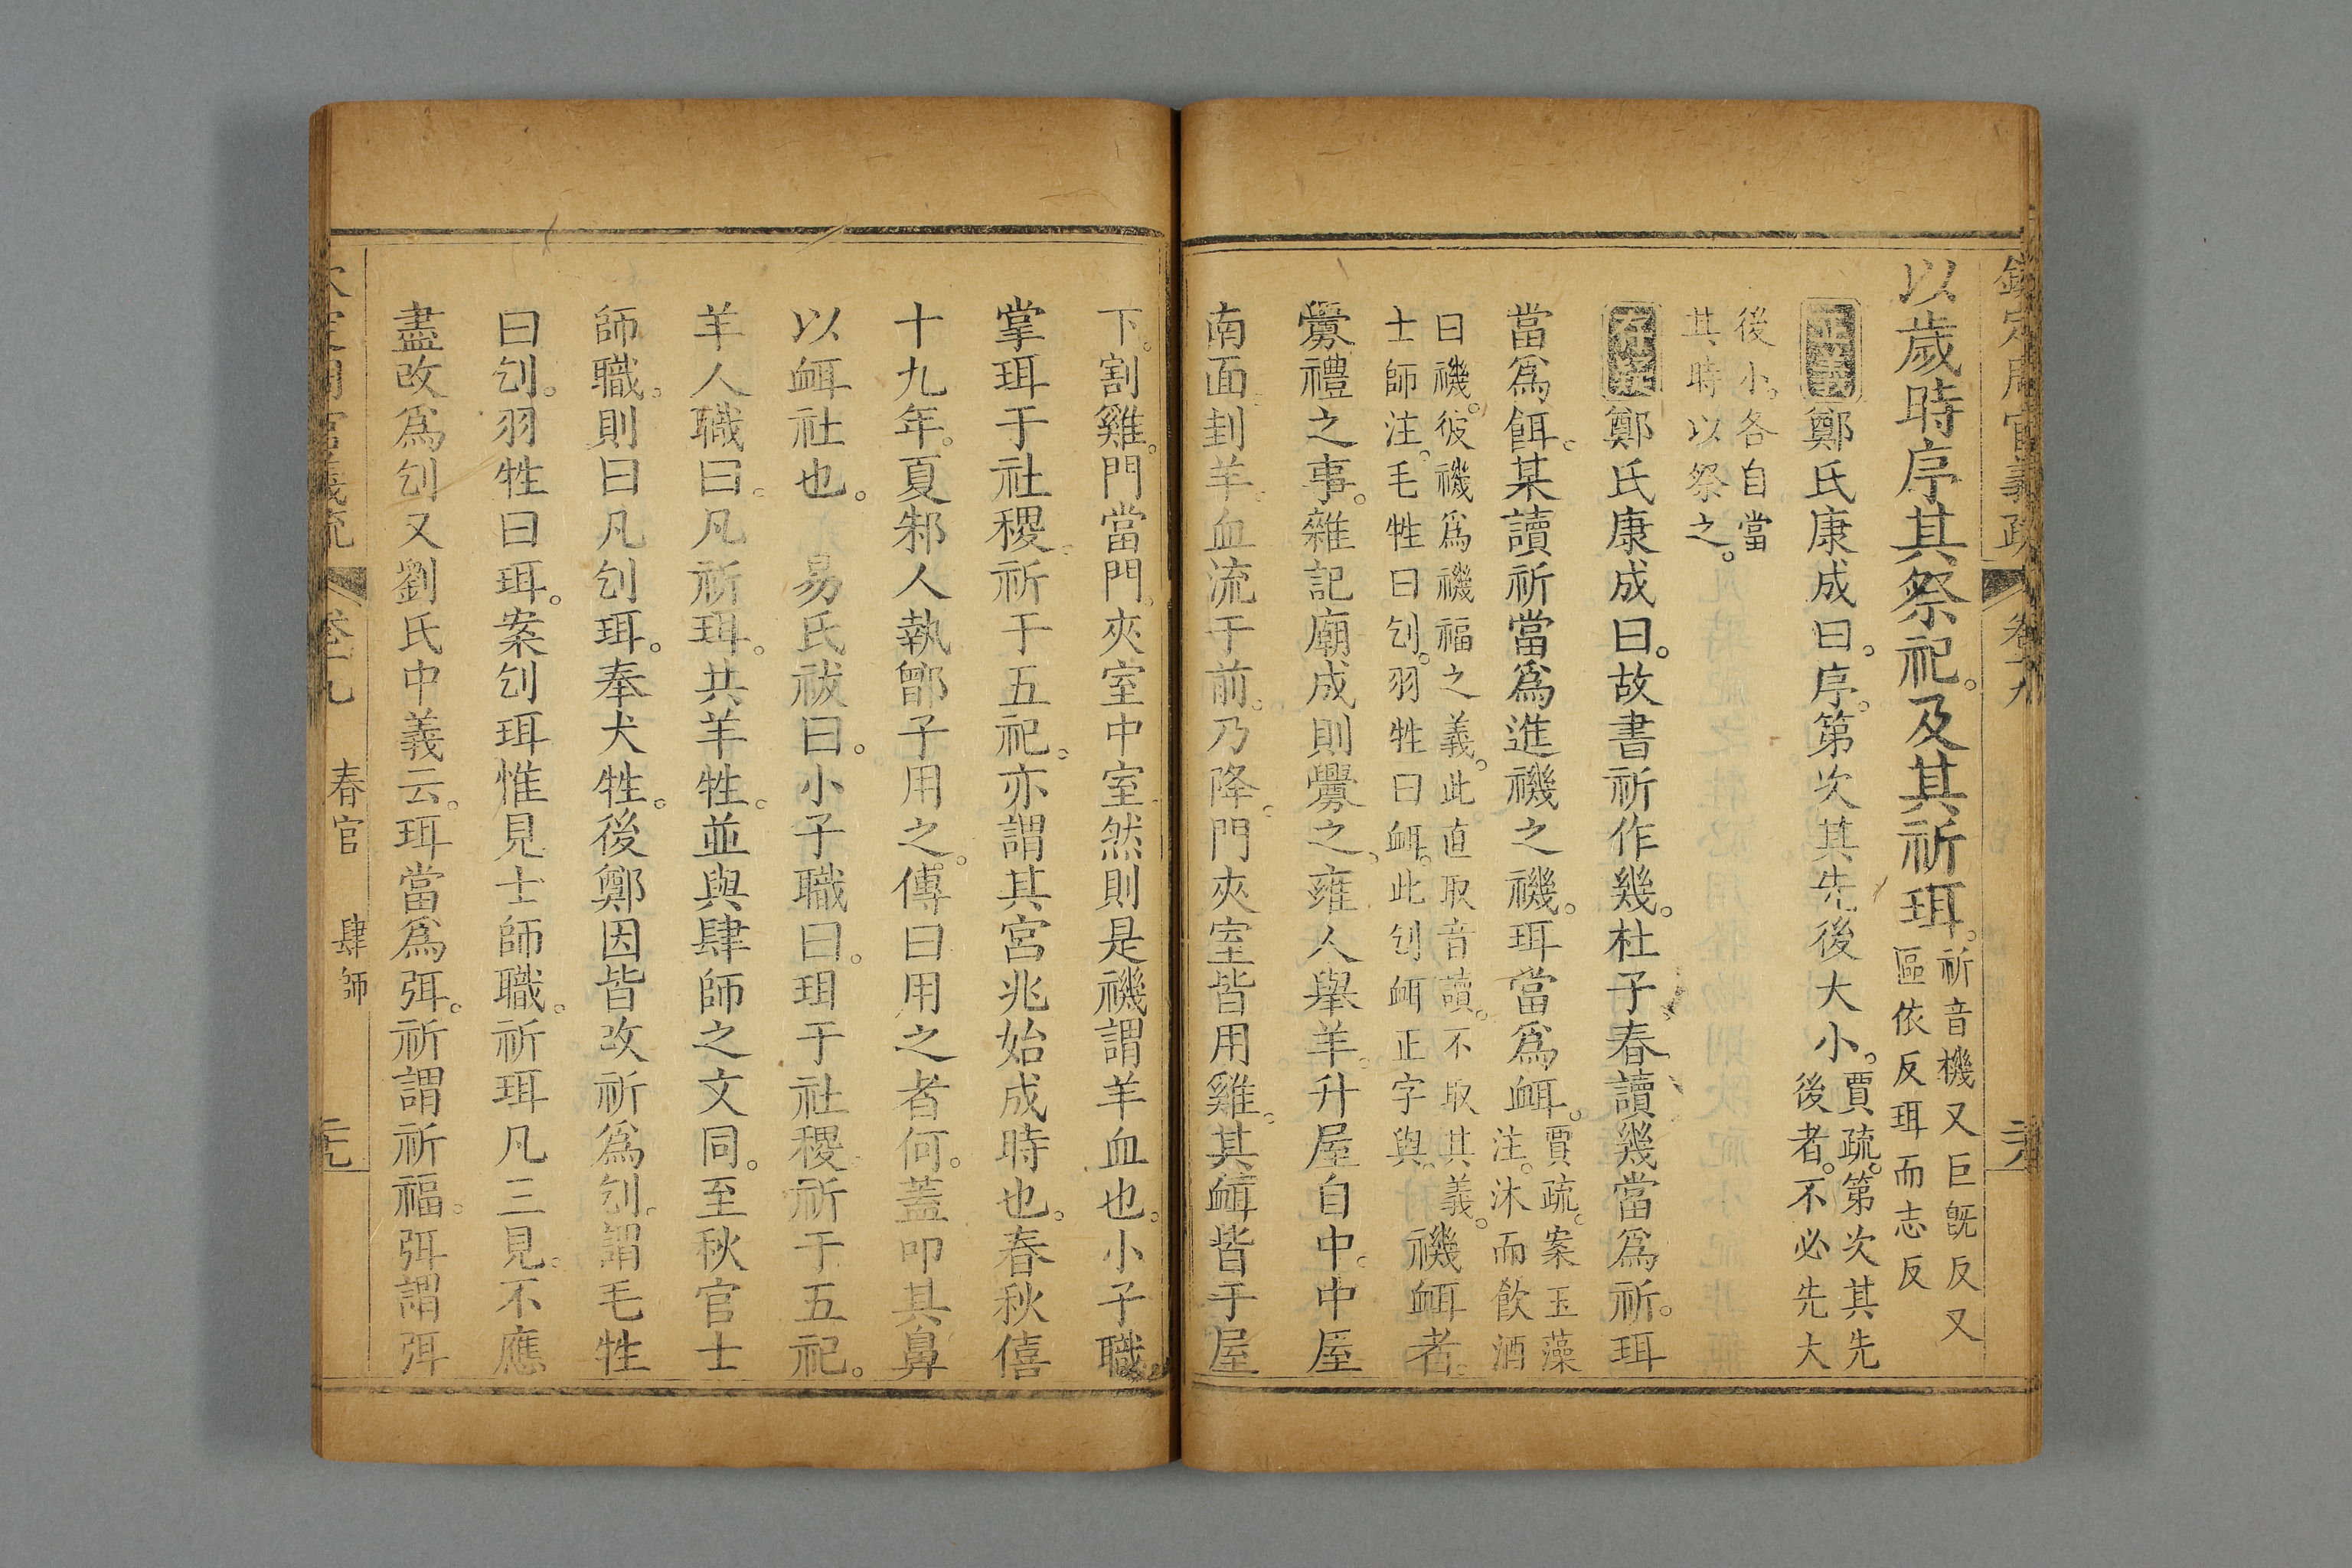 欽定周官義疏 卷十九
以歲時序其祭祀。及其祈珥。祈音機又巨旣反又區依反珥而志反
正義鄭氏康成曰。序。第次其先後大小。賈疏。第次其先後者。不必先大
後小。各自當其時以祭之。
存疑鄭氏康成曰。故書祈作幾。杜子春讀幾當爲祈。珥
當爲餌。某讀祈當爲進禨之禨。珥當爲衈。賈疏。案玉藻注。沐而飲酒
曰禨。彼禨爲禨福之義。此直取音讀。不取其義。士師注。毛牲曰刉。羽牲曰衈。此刉衈正字與。禨衈者。
釁禮之事。雜記廟成則釁之。雍人舉羊。升屋自中。中屋
南面封羊。血流于前。乃降。門夾室皆用雞。其衈皆于屋
下。割雞。門當門。夾室中室。然則是禨謂羊血也。小子職
掌珥于社稷。祈于五祀。亦謂其宮兆始成時也。春秋僖
十九年。夏邾人執鄫子用之。傳曰用之者何。蓋叩其鼻
以衈社也。易氏祓曰。小子職曰。珥于社稷祈于五祀。
羊人職曰。凡祈珥。共羊牲。並與肆師之文同。至秋官士
師職。則曰凡刉珥。奉犬牲。後鄭因皆改祈爲刉。謂毛牲
曰刉。羽牲曰珥。案刉珥惟見士師職。祈珥凡三見。不應
盡改爲刉又劉氏中義云。珥當爲弭。祈謂祈福。弭謂弭
欽定周官義疏 卷十九 春官 肆師